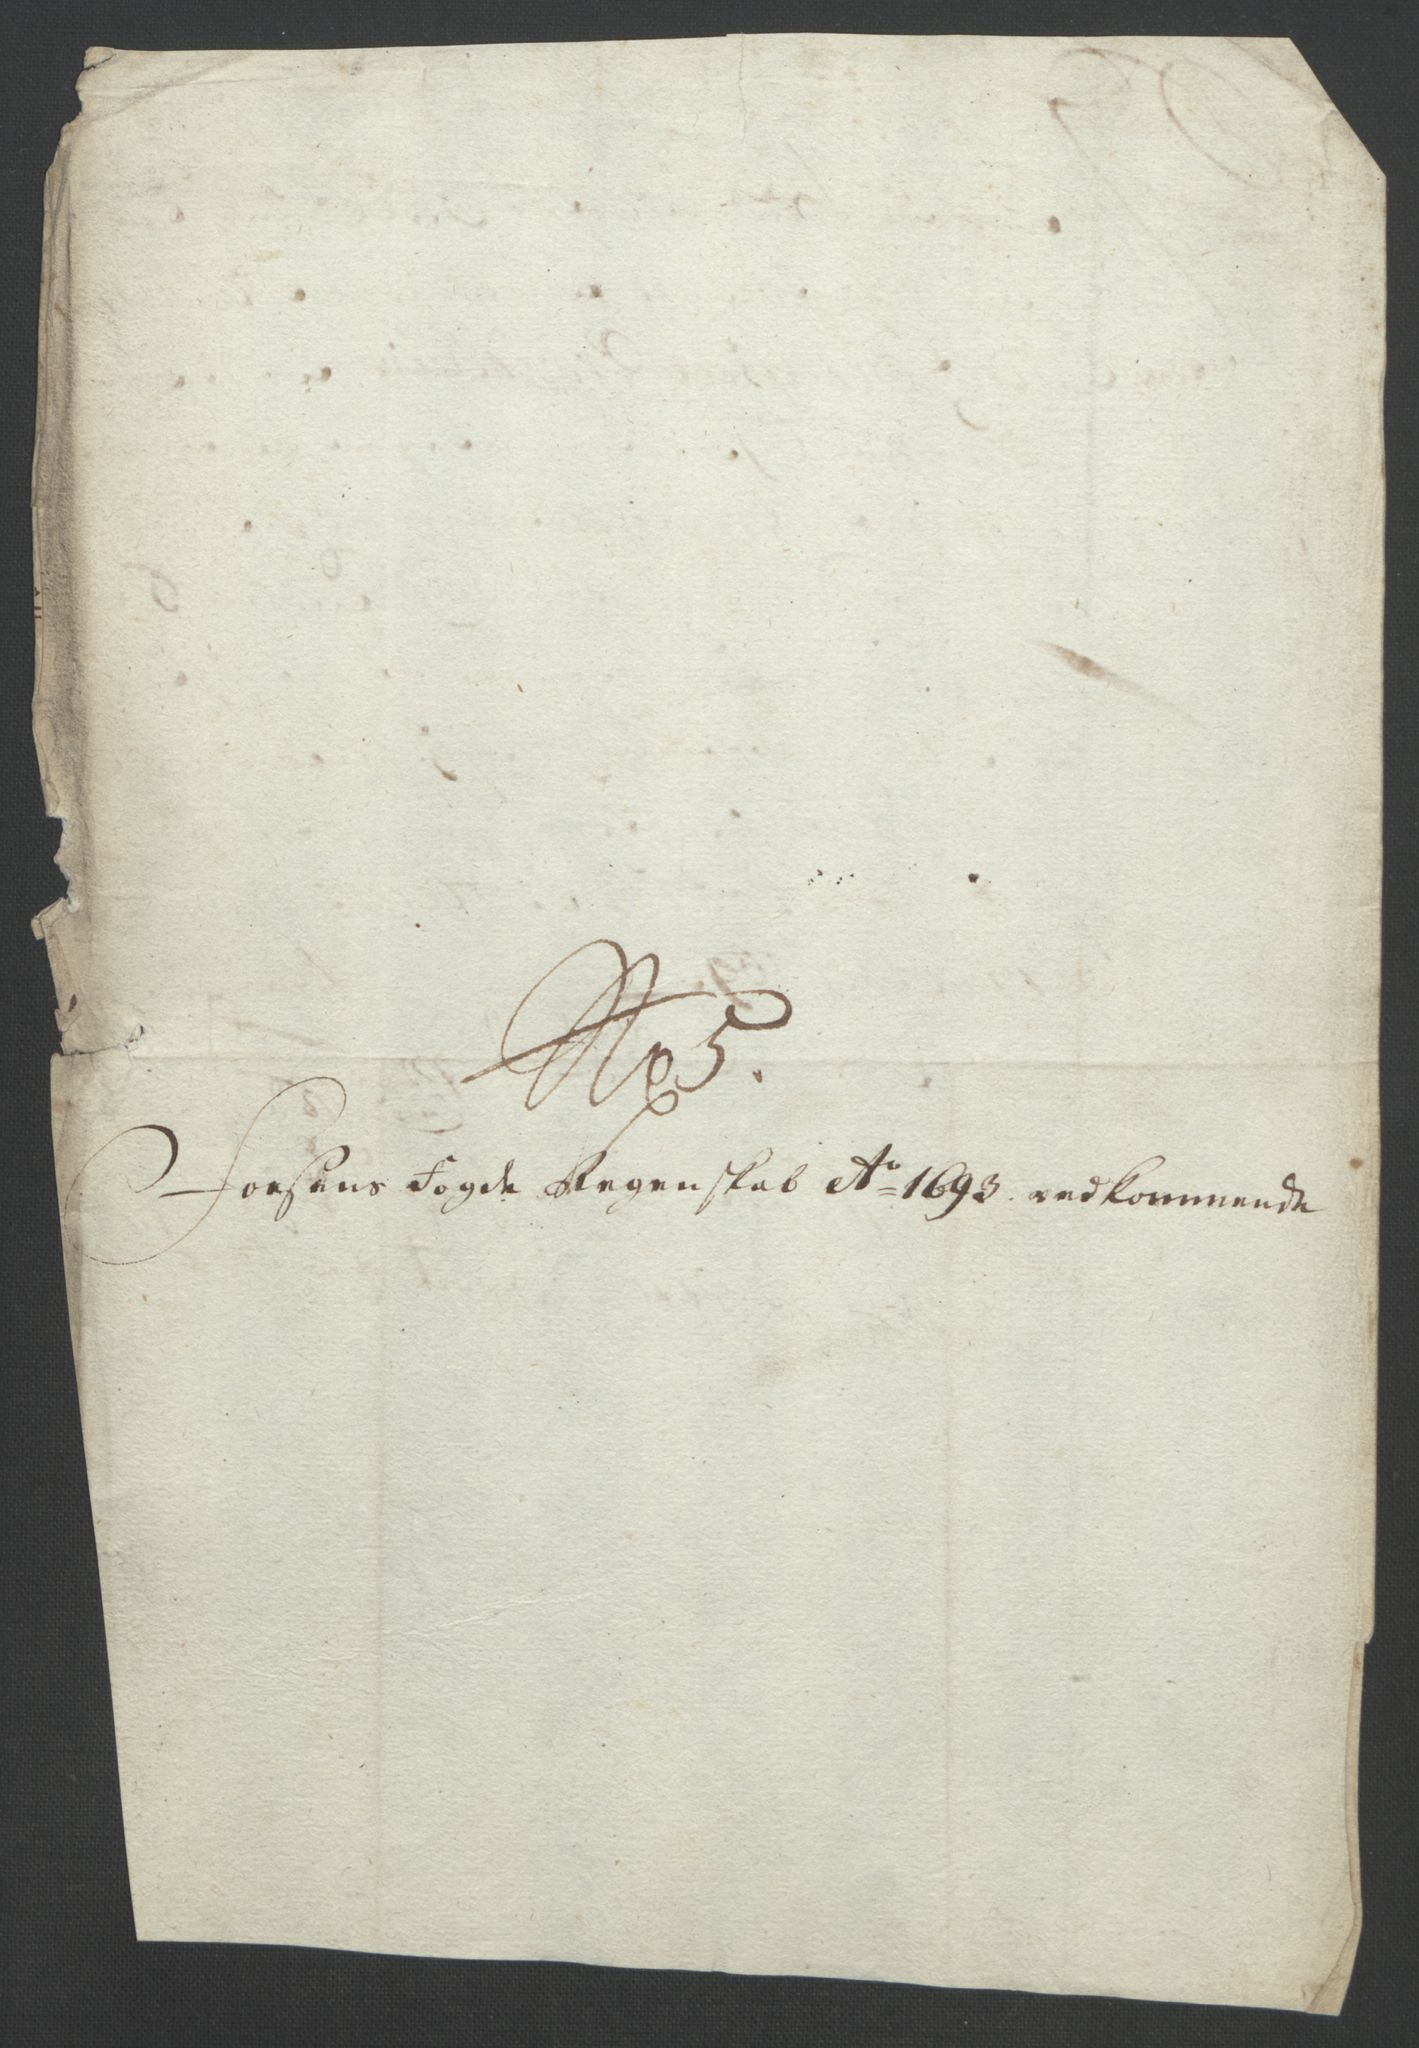 No 5.
Foesens Fogde Regenskab Ao 1693. vedkommende